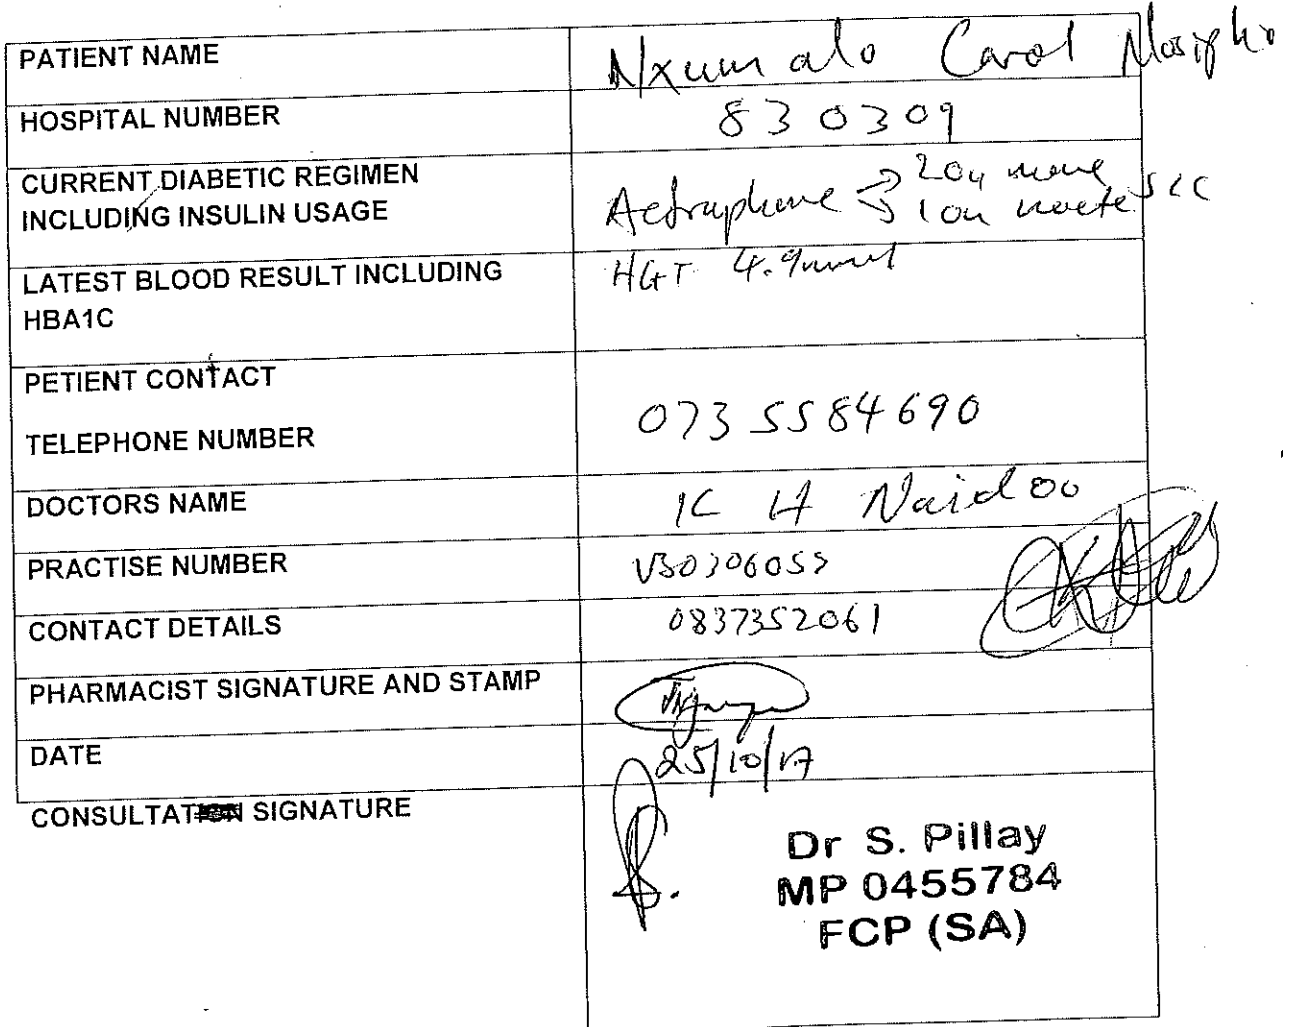 PATIENT NAME Nxumalo Carol Nosipho
HOSPITAL NUMBER 830309
CURRENT DIABETIC REGIMEN
INCLUDING INSULIN USAGE Actraphane → 20u mane
→ 10u nocte SCC
LATEST BLOOD RESULT INCLUDING HGT 4.9mmol
HBA1C
PETIENT CONTACT
TELEPHONE NUMBER 0735584690
DOCTORS NAME K H Naidoo
PRACTISE NUMBER
CONTACT DETAILS 0837352061
PHARMACIST SIGNATURE AND STAMP
DATE 25/10/17
CONSULTAT SIGNATURE
Dr S. Pillay
MP 0455784
FCP (SA)